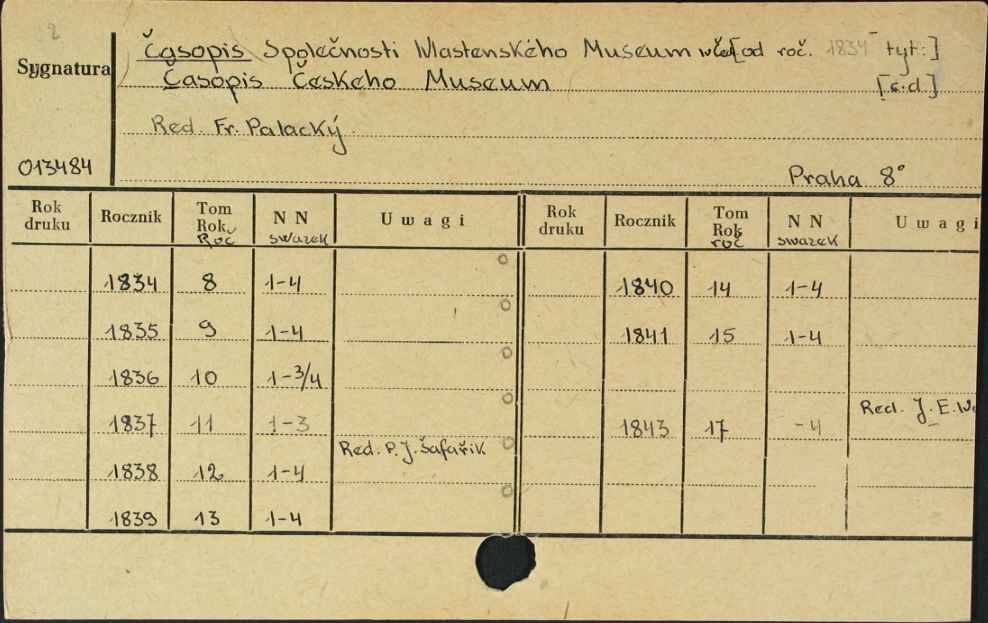 2
Časopis Společnosti Wlastenského Museum [od roč. 1834 tyt:]
Sygnatura
Časopis Českeho Museum [c.d.]
Red. Fr. Palacký.
013484
Praha 8°
Rok druku Rocznik Tom Rok Roč N N swazek Uwagi Rok druku Rocznik Tom Rok roč N N swazek Uwagi
1834 8 1-4 1840 14 1-4
1835 9 1-4 1841 15 1-4
1836 10 1-3/4
Red. J. E.
1837 11 1-3 1843 17 -4
Red. P. J. Šafařik
1838 12 1-4
1839 13 1-4